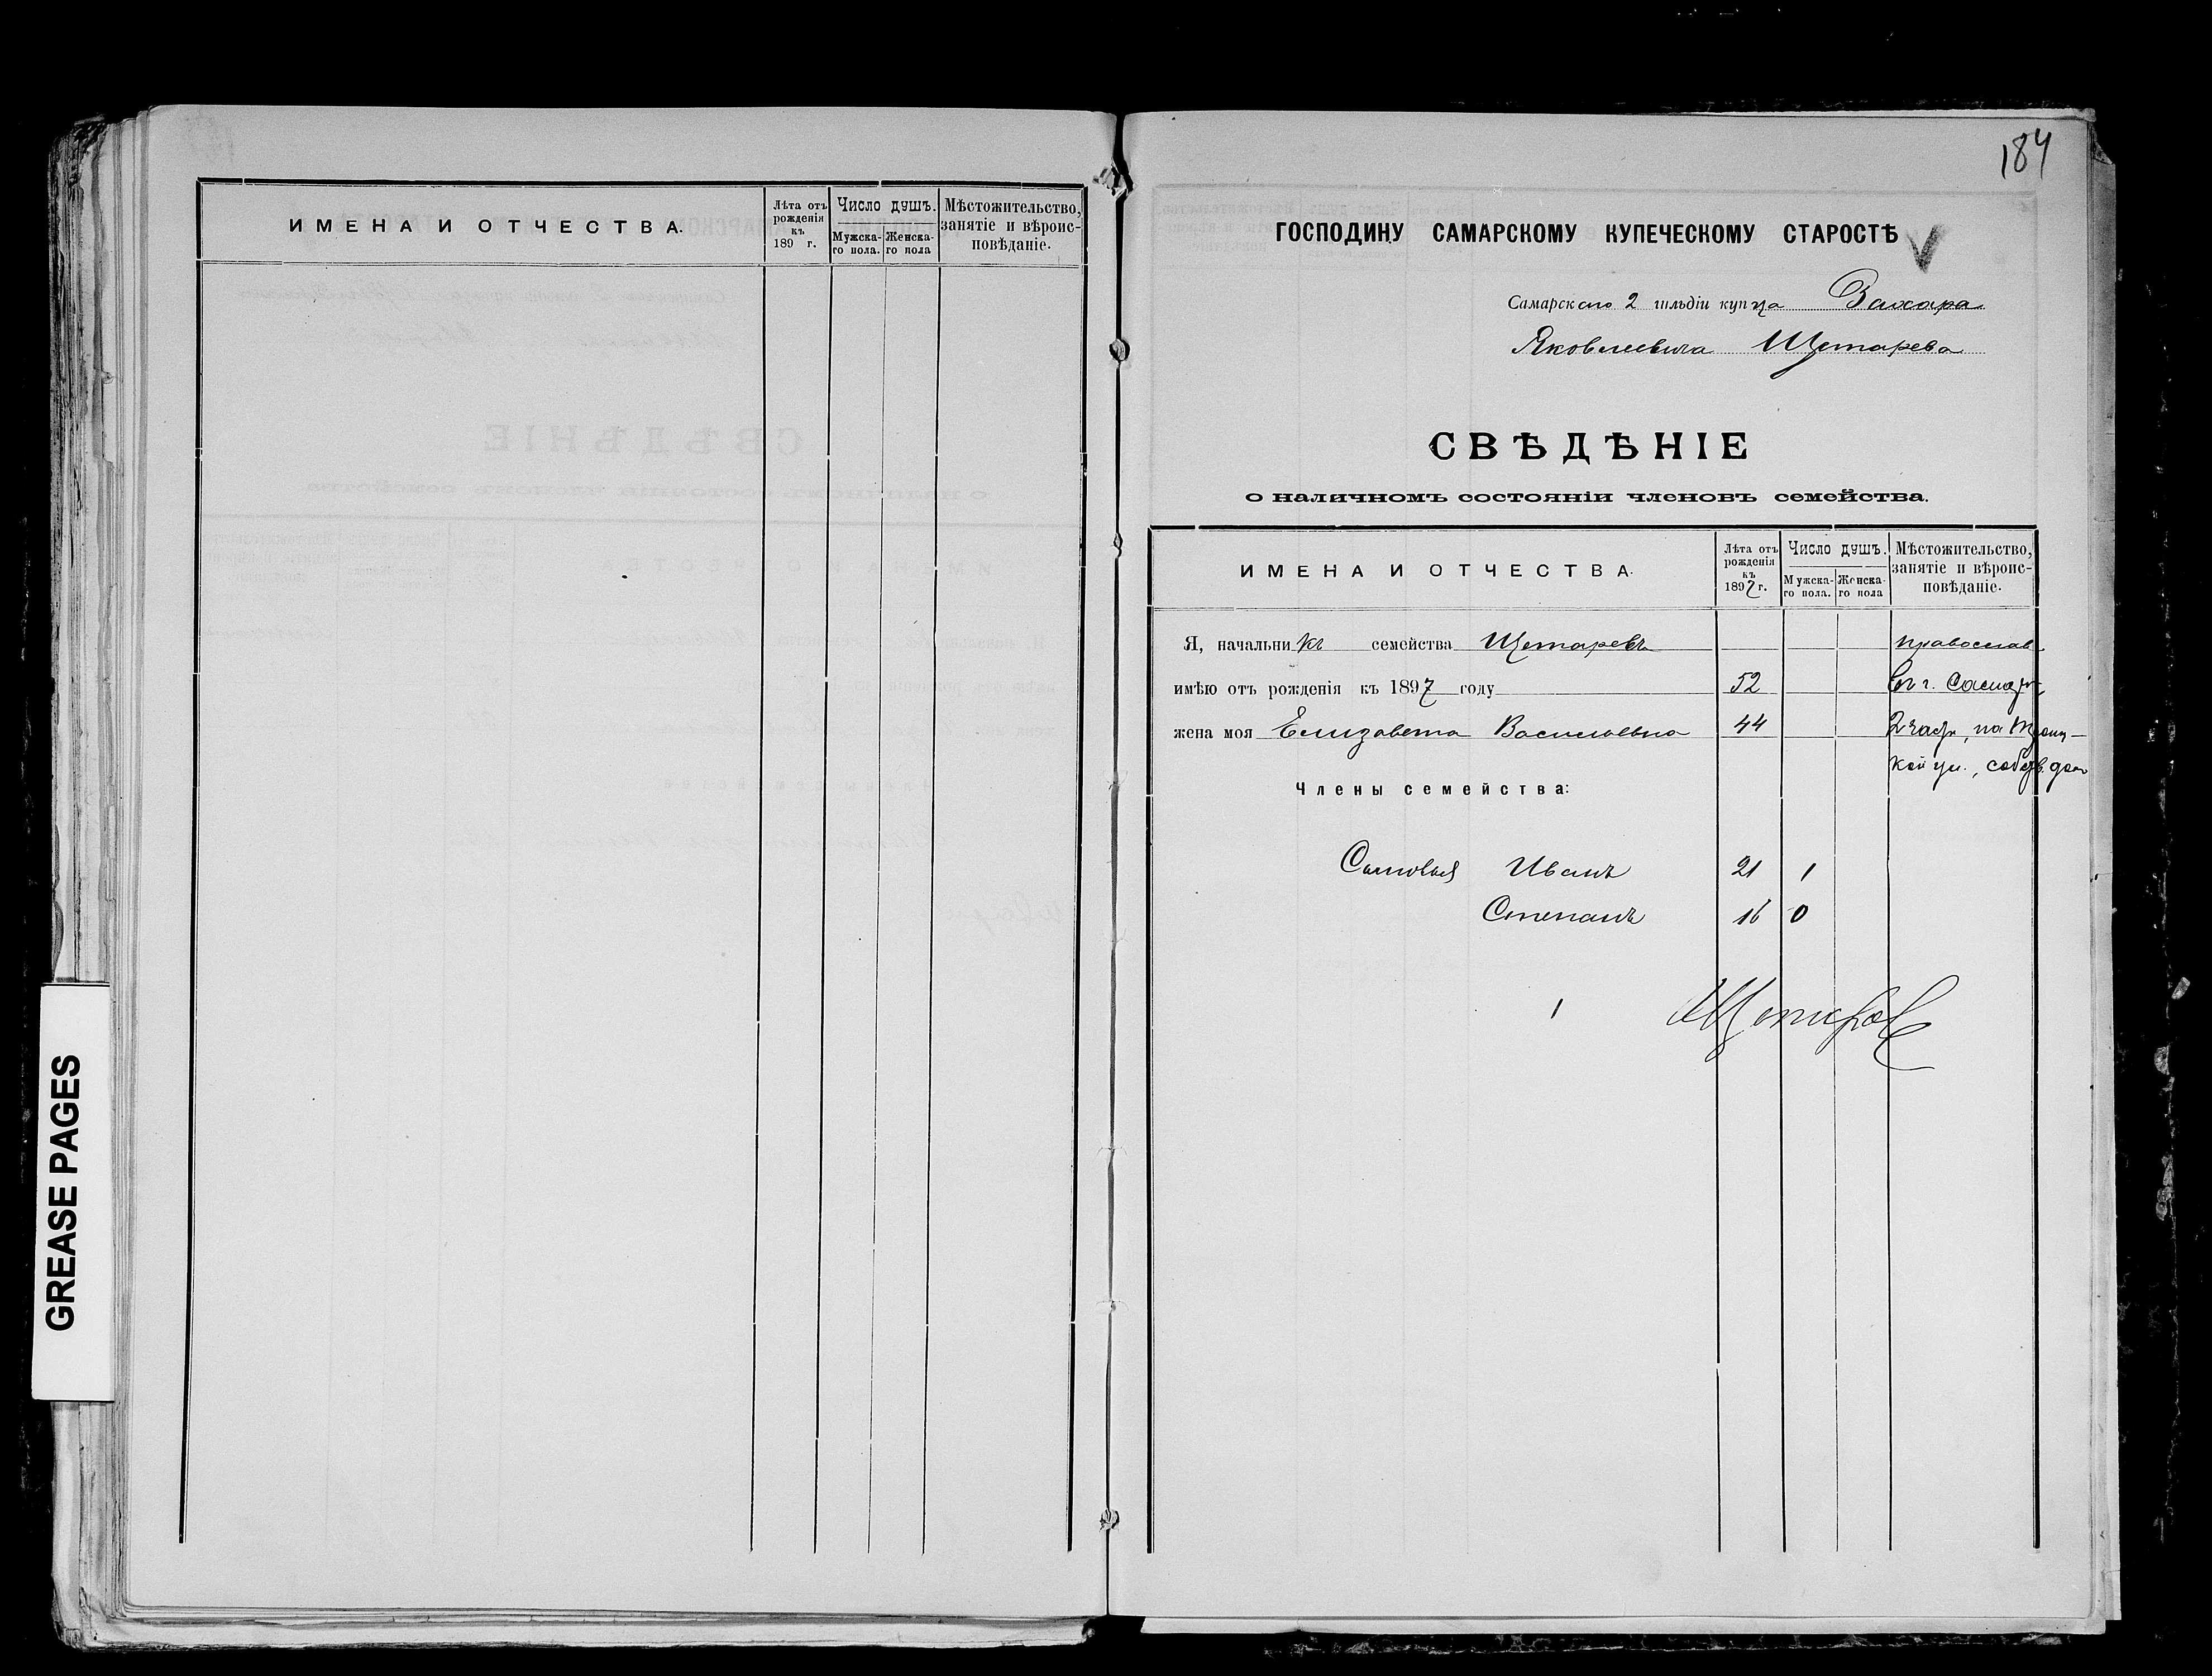 ИМЕНА И ОТЧЕСТВА.
Лѣта отъ рожденія къ 189 г.
Число душъ.
Мужска-го пола.
Женска-го пола
Мѣстожительство, занятіе и вѣроис-повѣданіе.
184
ГОСПОДИНУ САМАРСКОМУ КУПЕЧЕСКОМУ СТАРОСТѢ
Самарскаго 2 гильдіи купца Захара
Яковлевича Щетарева
СВѢДѢНІЕ
о наличномъ состояніи членовъ семейства.
ИМЕНА И ОТЧЕСТВА.
Лѣта отъ рожденія къ 1897 г.
Число душъ.
Мужска-го пола.
Женска-го пола
Мѣстожительство, занятіе и вѣроис-повѣданіе.
Я, начальникъ семейства Щетаревъ православ
имѣю отъ рожденія къ 1897 году 52 Въ г. Самарѣ
жена моя Елизавета Васильевна 44 2 части, на Троиц-
кой ул., собств. дом
Члены семейства:
Сыновья Иванъ 21 1
Степанъ 16 0
1
GREASE PAGES